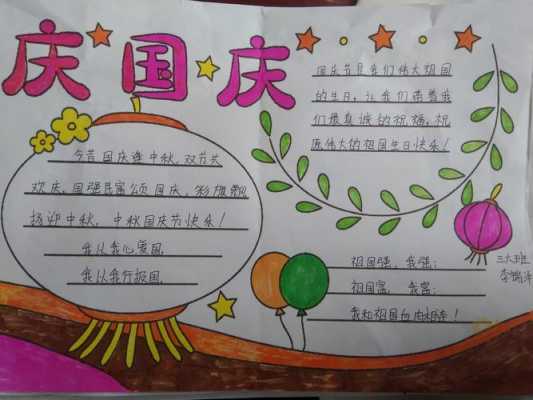 庆国庆
今昔国庆逢中秋,双节共
欢庆,国强民富颂国庆,彩旗飘
扬迎中秋,中秋国庆节快乐!
我从我心爱国,
我从我行报国,
国庆节是我们伟大祖国
的生日,让我们带着我
们最真诚的祝福,祝
愿伟大的祖国生日快乐!
祖国强,我强;
祖国富,我富;
我和祖国血肉相连!
三六班
李